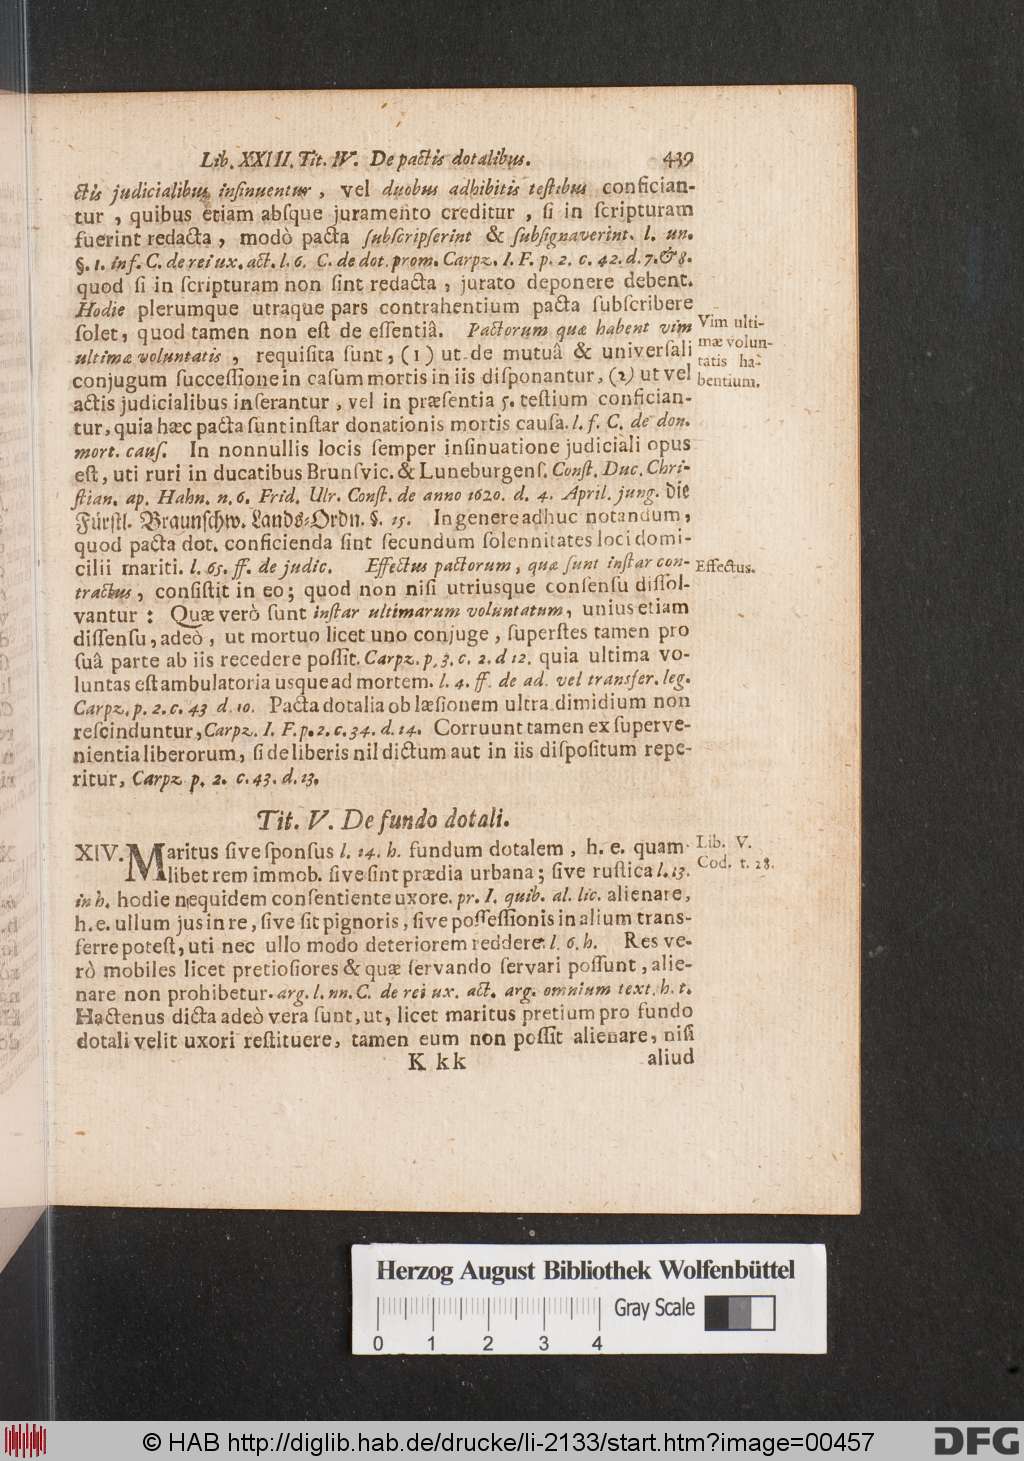 Lib. XXIII. Tit. IV. De pactis dotalibus. 439
ctis judicialibus insinuentur, vel duobus adhibitis testibus confician-
tur, quibus etiam absque juramento creditur, si in scripturam
fuerint redacta, modò pacta subscripserint & subsignaverint. l. un.
§. 1. inf. C. de rei ux. act. l. 6. C. de dot. prom. Carpz. I. F. p. 2. c. 42. d. 7. & 8.
quod si in scripturam non sint redacta, jurato deponere debent.
Hodie plerumque utraque pars contrahentium pacta subscribere
solet, quod tamen non est de essentiâ. Pactorum quæ habent vim
Vim ulti-
mæ volun-
tatis ha-
bentium.
ultimæ voluntatis, requisita sunt, (1) ut de mutuâ & universali
conjugum successione in casum mortis in iis disponantur, (2) ut vel
actis judicialibus inserantur, vel in præsentia 5. testium confician-
tur, quia hæc pacta sunt instar donationis mortis causa. l. f. C. de don.
mort. caus. In nonnullis locis semper insinuatione judiciali opus
est, uti ruri in ducatibus Brunsvic. & Luneburgens. Const. Duc. Chri-
stian. ap. Hahn. n. 6. Frid. Ulr. Const. de anno 1620. d. 4. April. jung. die
Fürstl. Braunschw. Lands-Ordn. §. 15. In genere adhuc notandum,
quod pacta dot. conficienda sint secundum solennitates loci domi-
cilii mariti. l. 65. ff. de judic. Effectus pactorum, quæ sunt instar con-
Effectus.
tractus, consistit in eo; quod non nisi utriusque consensu dissol-
vantur: Quæ verò sunt instar ultimarum voluntatum, unius etiam
dissensu, adeò, ut mortuo licet uno conjuge, superstes tamen pro
suâ parte ab iis recedere possit. Carpz. p. 3. c. 2. d 12. quia ultima vo-
luntas est ambulatoria usque ad mortem. l. 4. ff. de ad. vel transfer. leg.
Carpz. p. 2. c. 43 d. 10. Pacta dotalia ob læsionem ultra dimidium non
rescinduntur, Carpz. I. F. p. 2. c. 34. d. 14. Corruunt tamen ex superve-
nientia liberorum, si de liberis nil dictum aut in iis dispositum repe-
ritur, Carpz p. 2. c. 43. d. 13.
Tit. V. De fundo dotali.
XIV. Maritus sive sponsus l. 14. h. fundum dotalem, h. e. quam-
Lib. V.
Cod. t. 28.
libet rem immob. sive sint prædia urbana; sive rustica l. 13.
in h. hodie nequidem consentiente uxore. pr. I. quib. al. lic. alienare,
h. e. ullum jus in re, sive sit pignoris, sive possessionis in alium trans-
ferre potest, uti nec ullo modo deteriorem reddere. l. 6. h. Res ve-
rò mobiles licet pretiosiores & quæ servando servari possunt, alie-
nare non prohibetur. arg. l. nn. C. de rei ux. act. arg. omnium text. h. t.
Hactenus dicta adeò vera sunt, ut, licet maritus pretium pro fundo
dotali velit uxori restituere, tamen eum non possit alienare, nisi
K kk aliud
Herzog August Bibliothek Wolfenbüttel
Gray Scale
0 1 2 3 4
© HAB http://diglib.hab.de/drucke/li-2133/start.htm?image=00457
DFG